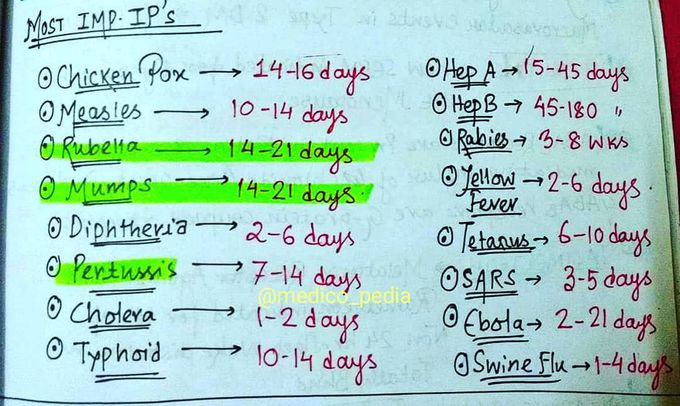 MOST IMP. IP's
Chicken Pox → 14-16 days
Measles → 10-14 days
Rubella → 14-21 days
Mumps → 14-21 days
Diphtheria → 2-6 days
Pertussis → 7-14 days
@medico_pedia
Cholera → 1-2 days
Typhoid → 10-14 days
Hep A → 15-45 days
Hep B → 45-180 "
Rabies → 3-8 wks
Yellow → 2-6 days.
Fever
Tetanus → 6-10 days
SARS → 3-5 days
Ebola → 2-21 days
Swine Flu → 1-4 days